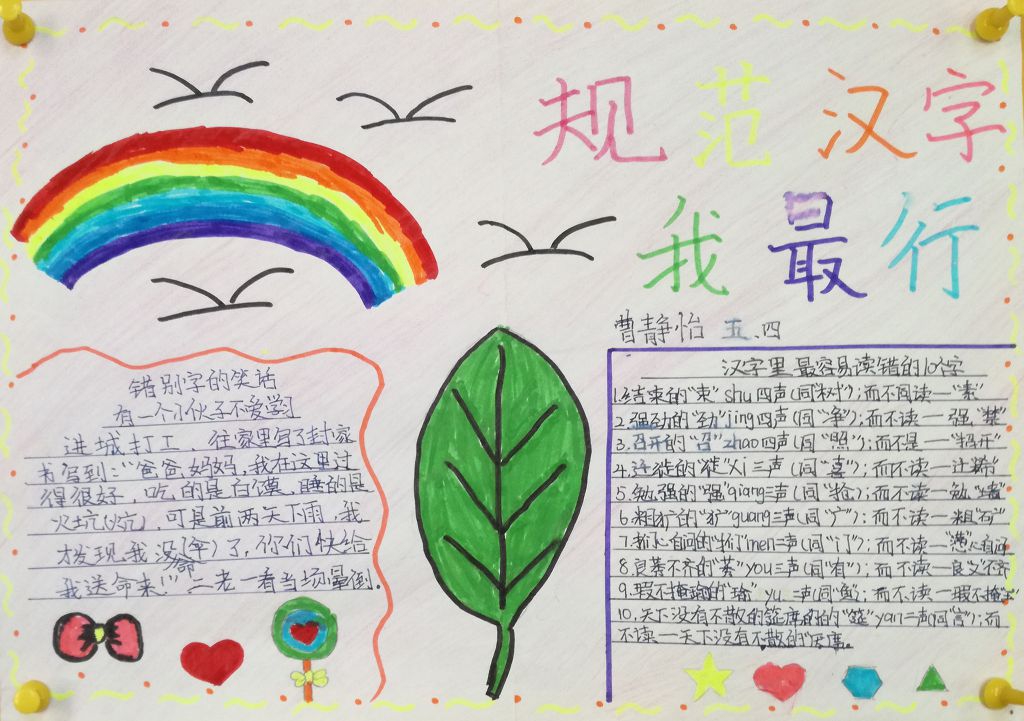 规范汉字
我最行
曹静怡 五、四
错别字的笑话
有一个小伙子不爱学习
进城打工，往家里写了封家
书写到：“爸爸妈妈，我在这里过
得很好，吃的是白馍，睡的是
火坑(炕)，可是前两天下雨，我
才发现我没命(伞)了，你们快给
我送命来！”二老一看当场晕倒。
汉字里最容易读错的10个字
1.结束的“束”shu四声(同“树”);而不阅读—“素”
2.强劲的“劲”jing四声(同“净”);而不读—强“禁”
3.召开的“召”zhao四声(同“照”);而不是—“招开”
4.迁徙的“徙”xi三声(同“喜”);而不读—迁
5.勉强的“强”qiang三声(同“抢”);而不读—勉“墙”
6.粗犷的“犷”guang三声(同“广”);而不读—粗“矿”
7.扪心自问的“扪”men二声(同“门”);而不读—心自问
8.良莠不齐的“莠”you三声(同“有”);而不读—良“义”不齐
9.瑕不掩瑜的“瑜”yu二声(同“鱼”);而不读—瑕不掩
10.天下没有不散的筵席的的“筵”yan二声(同“言”);而
不读—天下没有不散的“席。